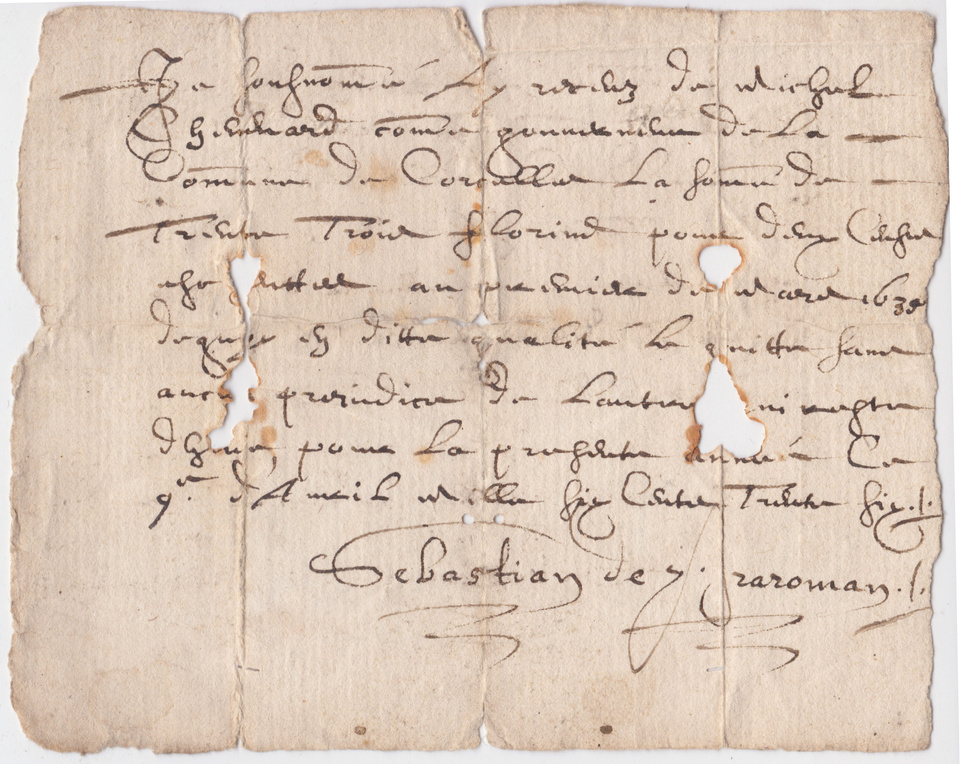 Je soubsnommé Ay receuz de Michel
Chevenard comme gouverneur de La
Comune de Corcelles La some de
Trente Trois florins pour deux Cense
au premier de Mars 1635
dequoy en ditte qualité le quitte sans
aucun prejudice de Lautre ni reste
dheue pour La presente Année Ce
9.e d'Avril Mille six Cents Trente six ./.
Sebastian de raroman ./.